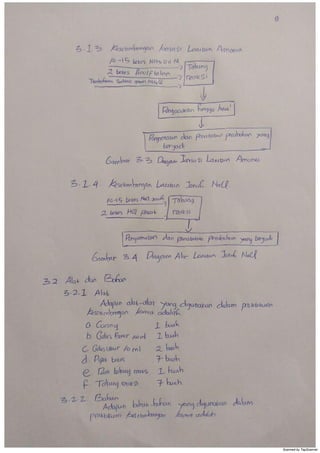 8
3.1.3 Kesetimbangan Ionisasi Larutan Amonia
10-15 tetes NH4OH M
2 tetes fenolftalein
Tabung
reaksi
Pengocokan hingga
Pengamatan dan pencatatan perubahan yang
terjadi
Gambar 3.3 Diagram Ionisasi Larutan Amonia
3.1.4 Kesetimbangan Larutan Jenuh NaCl
10-15 tetes NaCl jenuh
2 tetes HCl pekat
Tabung
reaksi
Pengamatan dan pencatatan perubahan yang terjadi
Gambar 3.4 Diagram Alir Larutan Jenuh NaCl
3.2 Alat dan Bahan
3.2.1 Alat
Adapun alat-alat yang digunakan dalam praktikum
kesetimbangan kimia adalah:
a. Corong 1 buah
b. Gelas 1 buah
c. Gelas ukur 10 ml 2 buah
d. Pipet tetes 7 buah
e. Rak tabung reaksi 1 buah
f. Tabung reaksi 7 buah
3.2.2 Bahan
Adapun bahan-bahan yang digunakan dalam
praktikum kesetimbangan kimia adalah
Scanned by TapScanner